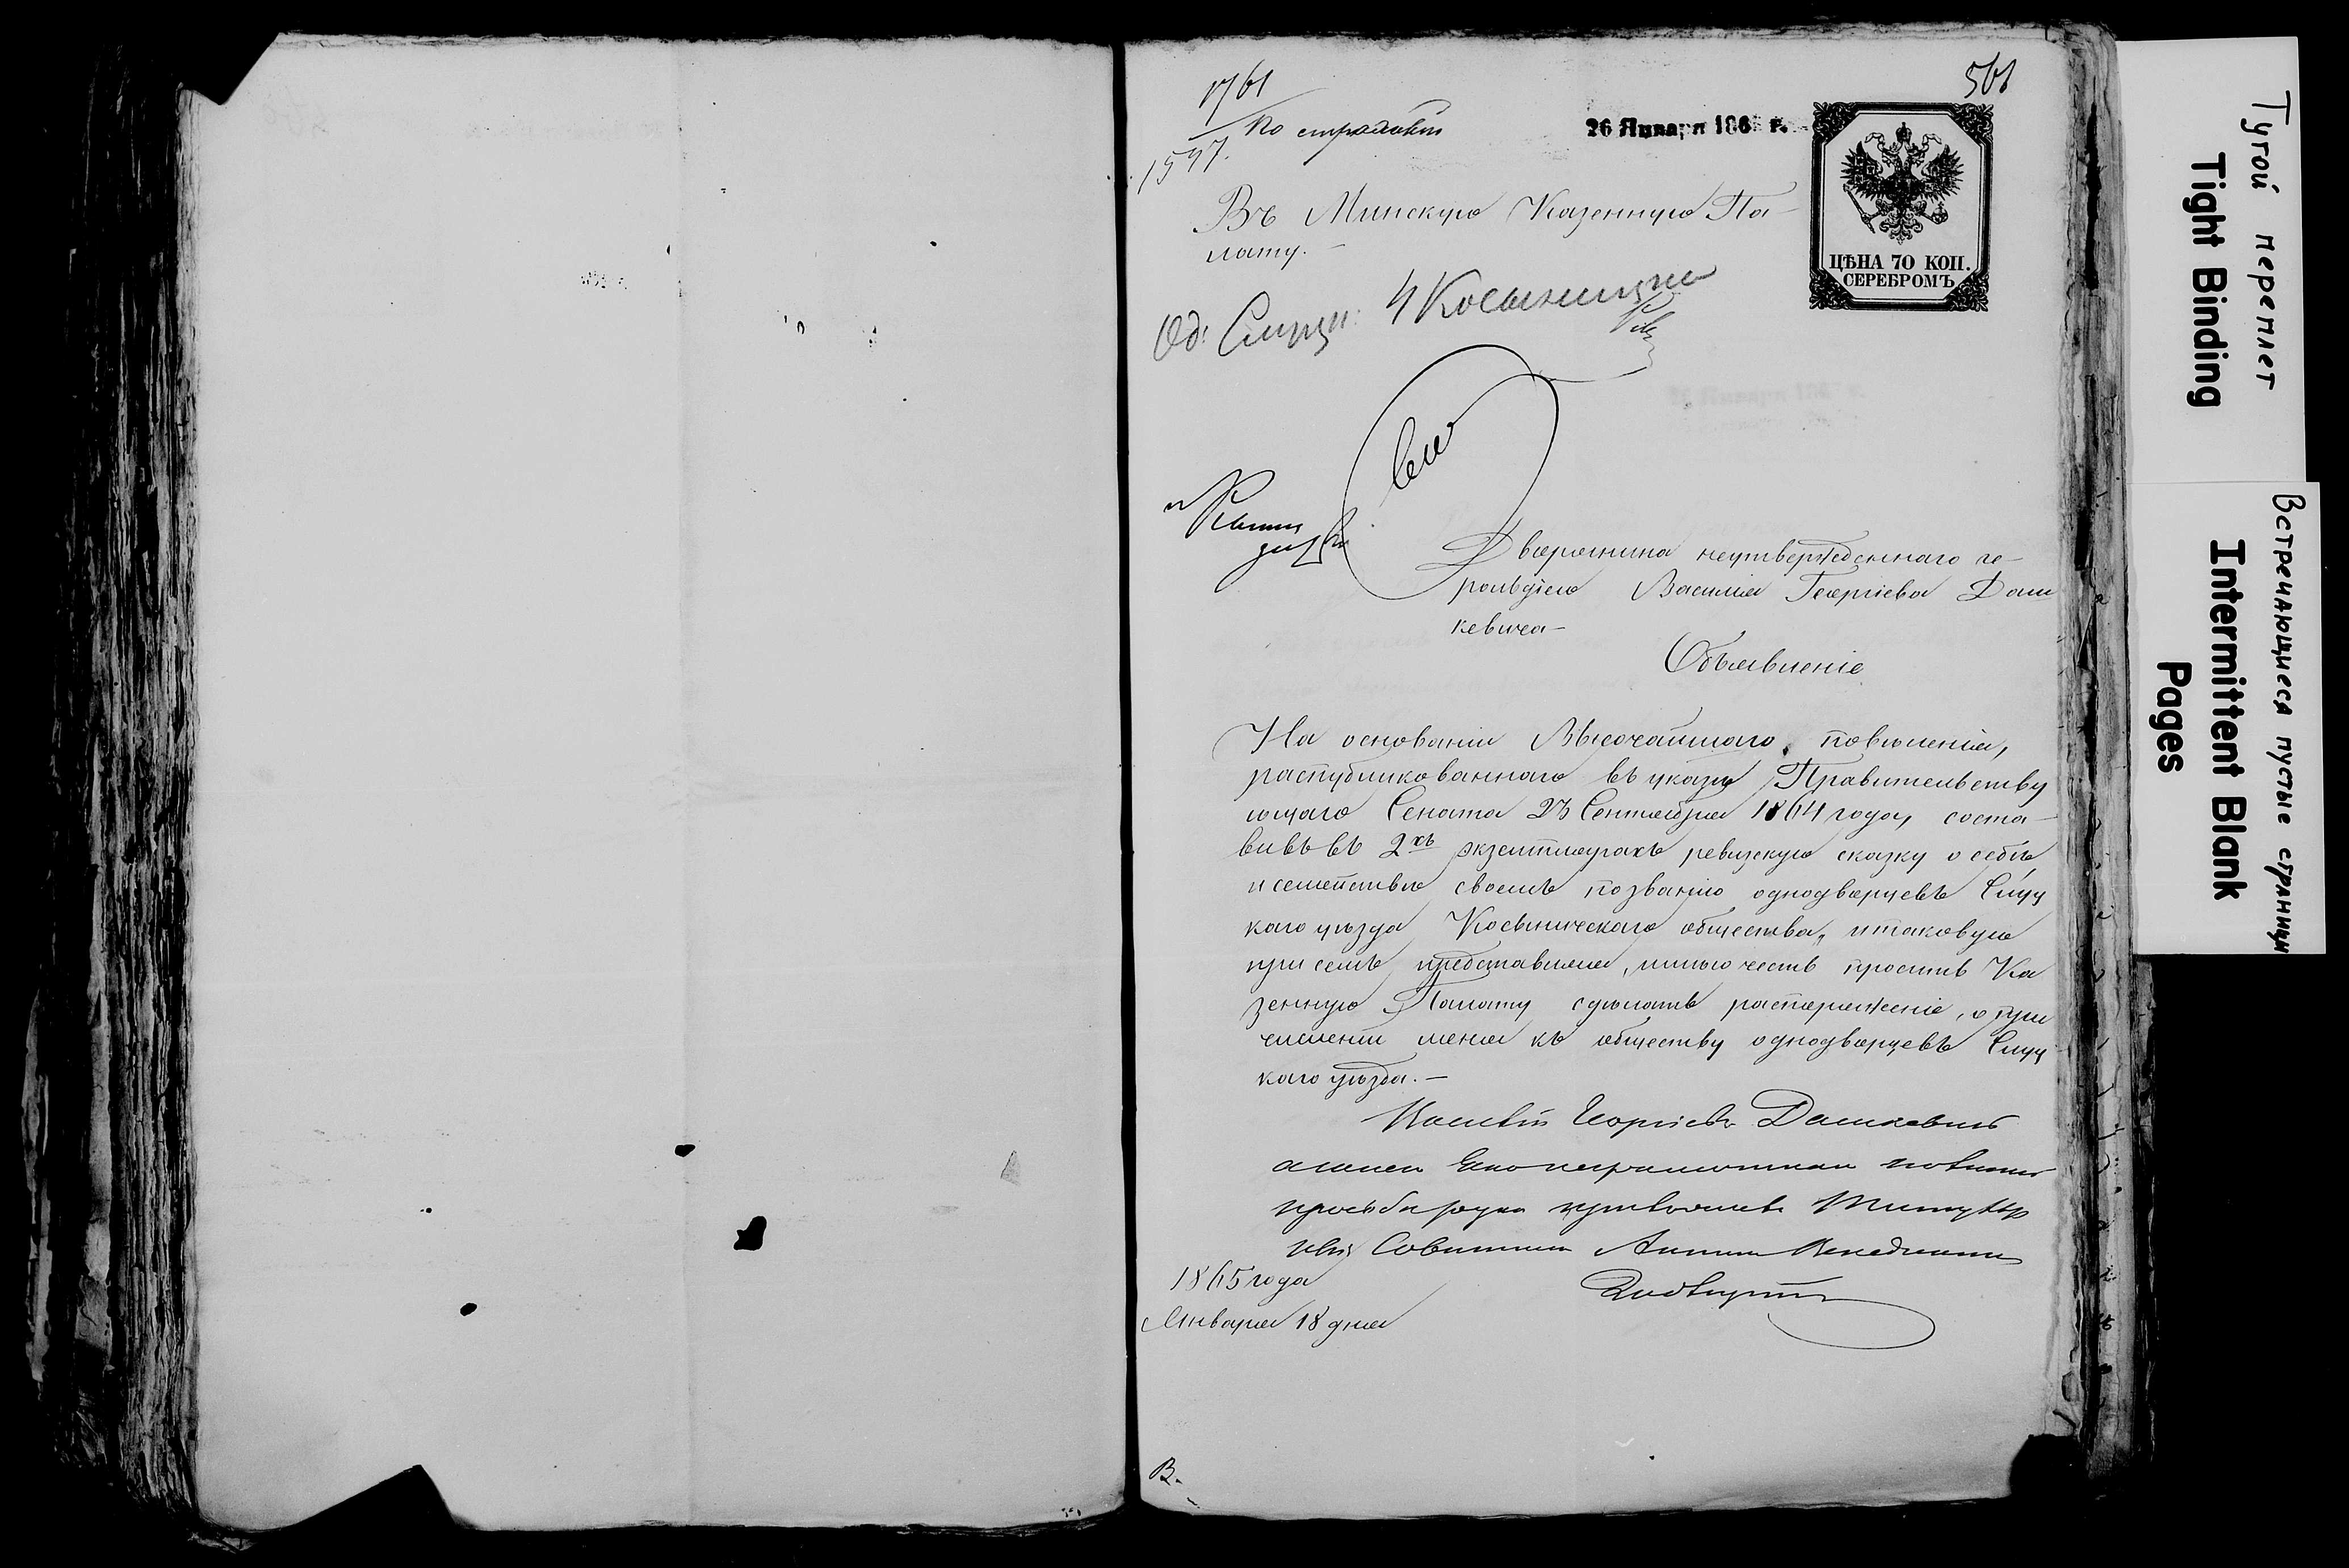 1761
561
26 Января 186 г.
1597.
ЦѢНА 70 КОП.
СЕРЕБРОМЪ
Въ Минскую Казенную Па-
лату. —
Од: Слуцк:
Дворянина неутвержденнаго ге-
рольдіею Василія Георгіева Даш
кевича —
Объявленіе
На основаніи Высочайшаго повѣленія,
распубликованнаго въ указѣ Правительству
ющаго Сената 23 Сентября 1864 года, соста-
вивъ въ 2хъ экземплярахъ ревизскую сказку о себѣ
и семействѣ своемъ по званію однодворцевъ Слуц
каго уѣзда Косыничскаго общества, и таковую
при семъ представляя, имѣю честь просить Ка
зенную Палату сдѣлать распоряженіе, о при
численіи меня къ обществу однодворцевъ Слуц
каго уѣзда. —
Георгіевъ Дашкевичъ
просьбѣ руку Титуляр
ный Совѣтникъ Антонъ
1865 года
Января 18 дня
В.
Тугой переплет
Tight Binding
Встречающиеся пустые страницы
Intermittent Blank
Pages